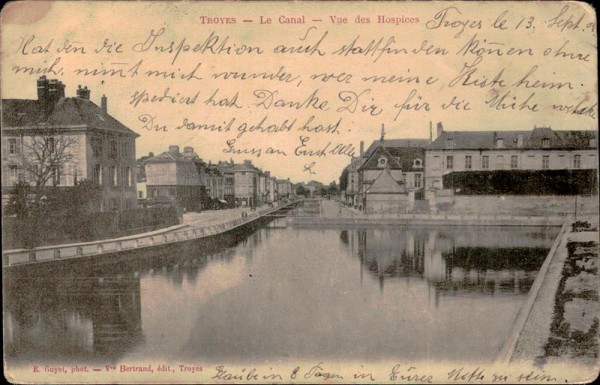 TROYES — Le Canal — Vue des Hospices
Troyes le 13. Sept.
Hat den die Inspektion auch stattfinden können ohne
mich, nimt mich wunder, wer meine Kiste heim
spediert hat. Danke Dir für die Mühe welche
Du damit gehabt hast.
Gruss an Euch Alle
Glaube in 8 Tagen in Eurer Nähe zu sein.
E. Guyot, phot. — Vve Bertrand, édit., Troyes